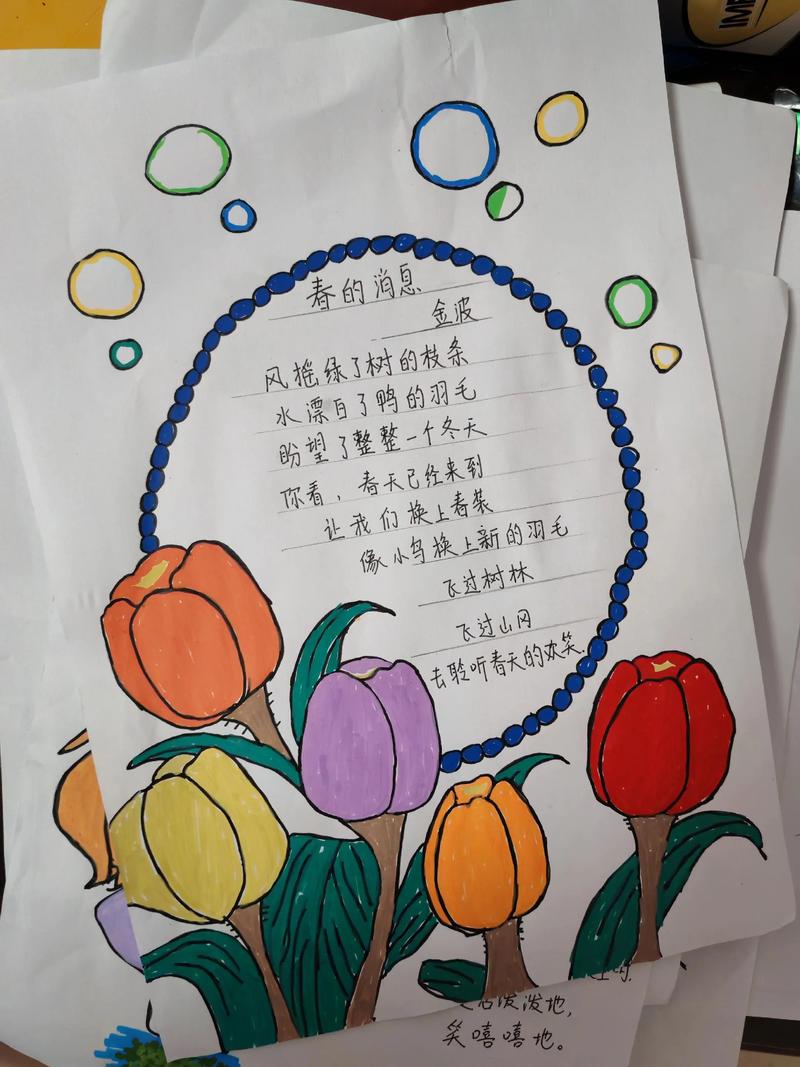 春的消息
金波
风摇绿了树的枝条
水漂白了鸭的羽毛
盼望了整整一个冬天
你看，春天已经来到
让我们换上春装
像小鸟换上新的羽毛
飞过树林
飞过山冈
去聆听春天的欢笑.
泼泼地，
笑嘻嘻地。